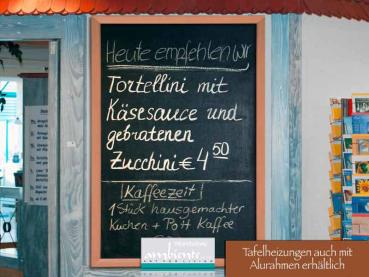 Heute empfehlen wir
Tortellini mit
Käsesauce und
gebratenen
Zucchini € 4 50
Kaffeezeit
1 Stück hausgemachter
Kuchen + Pott Kaffee
ambiente
Tafelheizungen auch mit
Alurahmen erhältlich